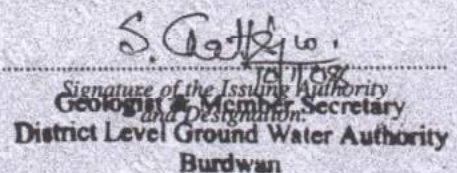 Signature of the Issuing Authority
and Designation.
Geologist & Member Secretary
District Level Ground Water Authority
Burdwan